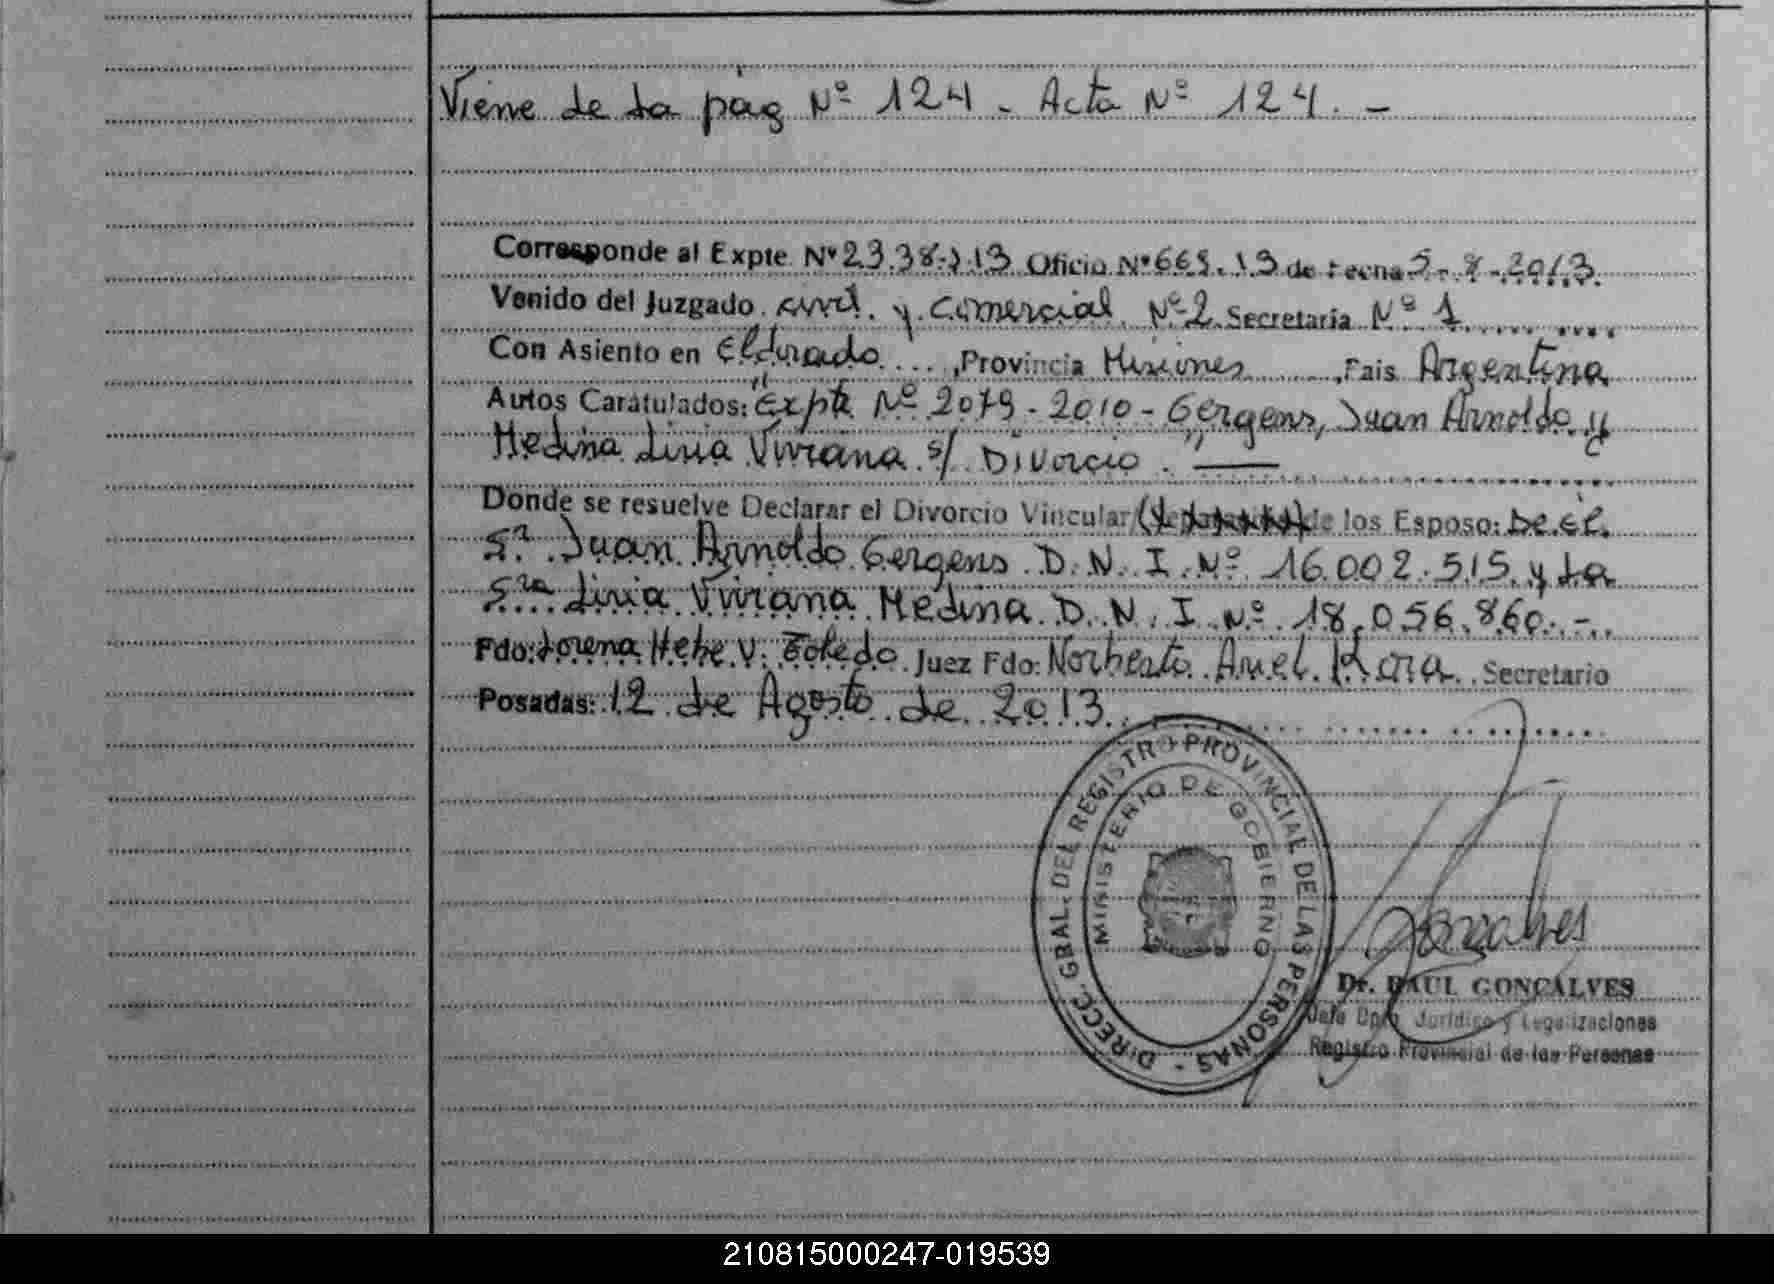 Viene de la pág Nº 124 - Acta Nº 124. -
Corresponde al Expte. Nº 2338-J-13 Oficio Nº 669.13 de fecha 5-8-2013
Venido del Juzgado civil y Comercial Nº 2 Secretaría Nº 1
Con Asiento en Eldorado ...., Provincia Misiones ......, Pais Argentina
Autos Caratulados: "Expte Nº 2079-2010 - Gergens, Juan Arnoldo y
Medina Liria Viviana s/ Divorcio." —
Donde se resuelve Declarar el Divorcio Vincular de los Esposo: De el
Sr. Juan Arnoldo Gergens D.N.I. Nº 16.002.515 y la
Sra. Liria Viviana Medina D.N.I. Nº 18.056.860.-
Fdo: Lorena Hebe V. Toledo Juez Fdo: Norberto Ariel Secretario
Posadas: 12 de Agosto de 2013
DIRECC. GRAL. DEL REGISTRO PROVINCIAL DE LAS PERSONAS -
MINISTERIO DE GOBIERNO
Goncalves
Dr. RAUL GONCALVES
Jefe Dpto. Jurídico y Legalizaciones
Registro Provincial de las Personas
210815000247-019539